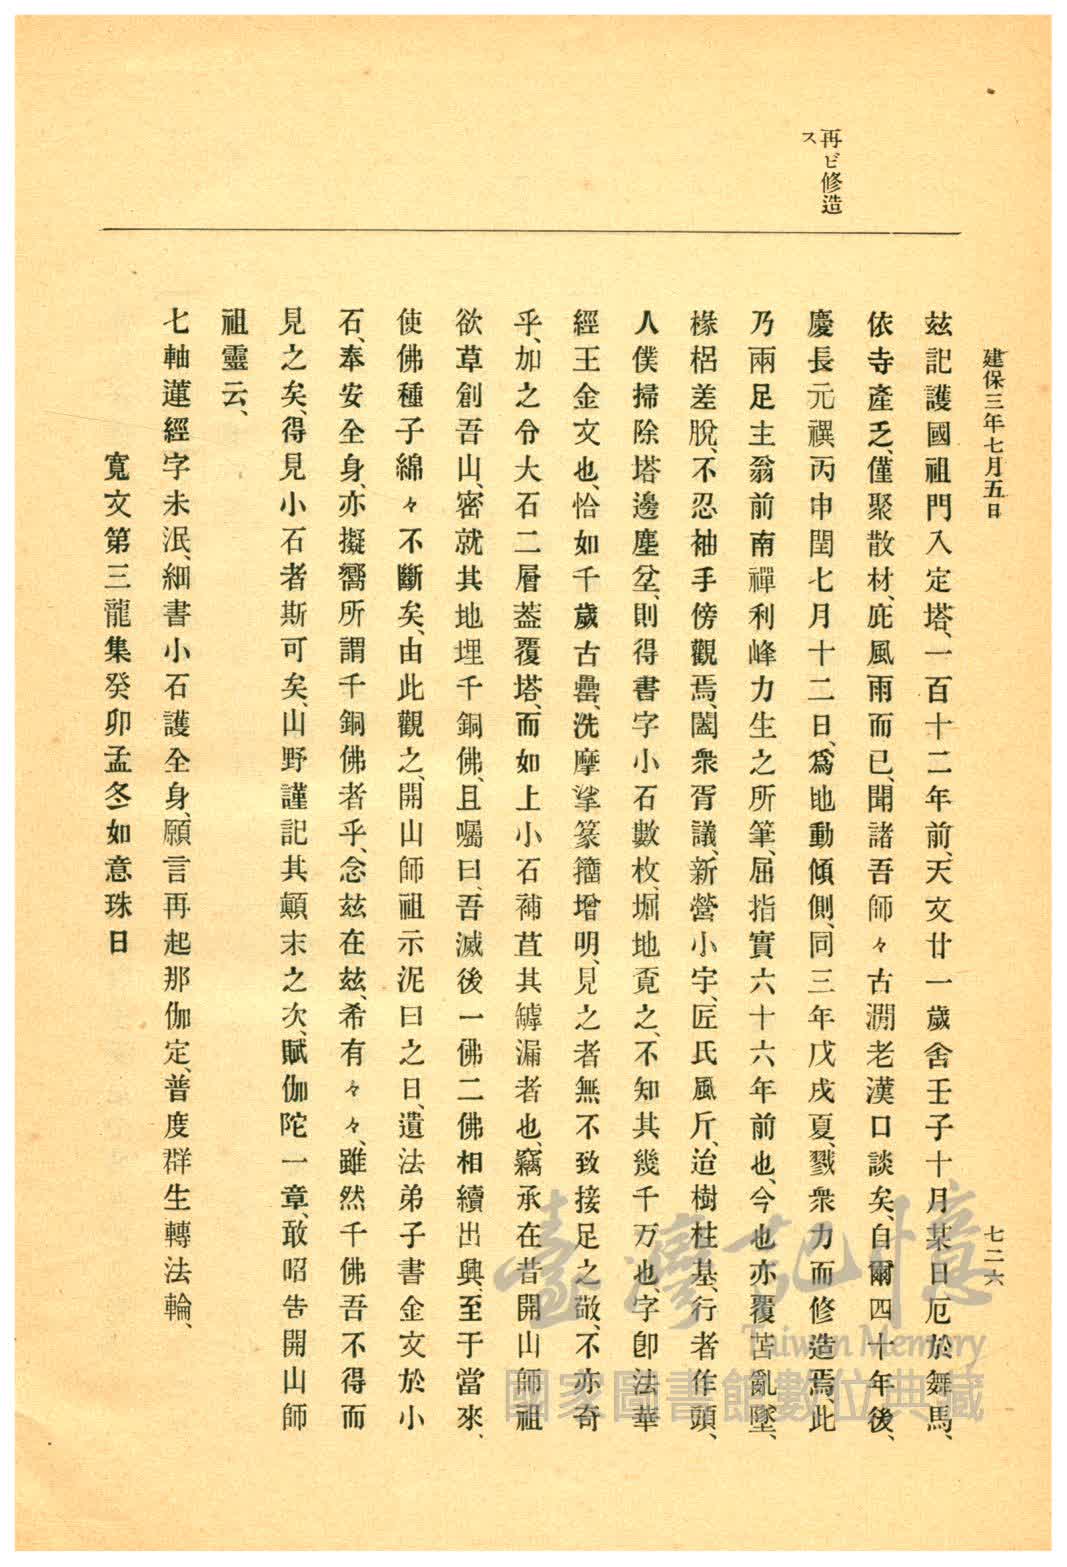 建保三年七月五日
七二六
再ビ修造
ス
玆記護國祖門入定塔、一百十二年前、天文廿一歲舍壬子十月某日厄於舞馬、
依寺產乏、僅聚散材、庇風雨而已、聞諸吾師々古澗老漢口談矣、自爾四十年後、
慶長元禩丙申閏七月十二日、爲地動傾側、同三年戊戌夏、戮衆力而修造焉、此
乃兩足主翁前南禪利峰力生之所筆、屈指實六十六年前也、今也亦覆苫亂墜、
椽梠差脫、不忍袖手傍觀焉、闔衆胥議、新營小宇、匠氏風斤、迨樹柱基、行者作頭、
人僕掃除塔邊塵坌、則得書字小石數枚、堀地覔之、不知其幾千万也、字卽法華
經王金文也、恰如千歲古罍、洗摩挲篆籀增明、見之者無不致接足之敬、不亦奇
乎、加之令大石二層葢覆塔、而如上小石補苴其罅漏者也、竊承在昔開山師祖
欲草創吾山、密就其地埋千銅佛、且囑曰、吾滅後一佛二佛相續出興、至于當來、
使佛種子綿々不斷矣、由此觀之、開山師祖示泥曰之日、遺法弟子書金文於小
石、奉安全身、亦擬嚮所謂千銅佛者乎、念玆在玆、希有々々、雖然千佛吾不得而
見之矣、得見小石者斯可矣、山野謹記其顚末之次、賦伽陀一章、敢昭告開山師
祖靈云、
七軸蓮經字未泯、細書小石護全身、願言再起那伽定、普度群生轉法輪、
寬文第三龍集癸卯孟冬如意珠日
臺灣記憶
Taiwan Memory
國家圖書館數位典藏